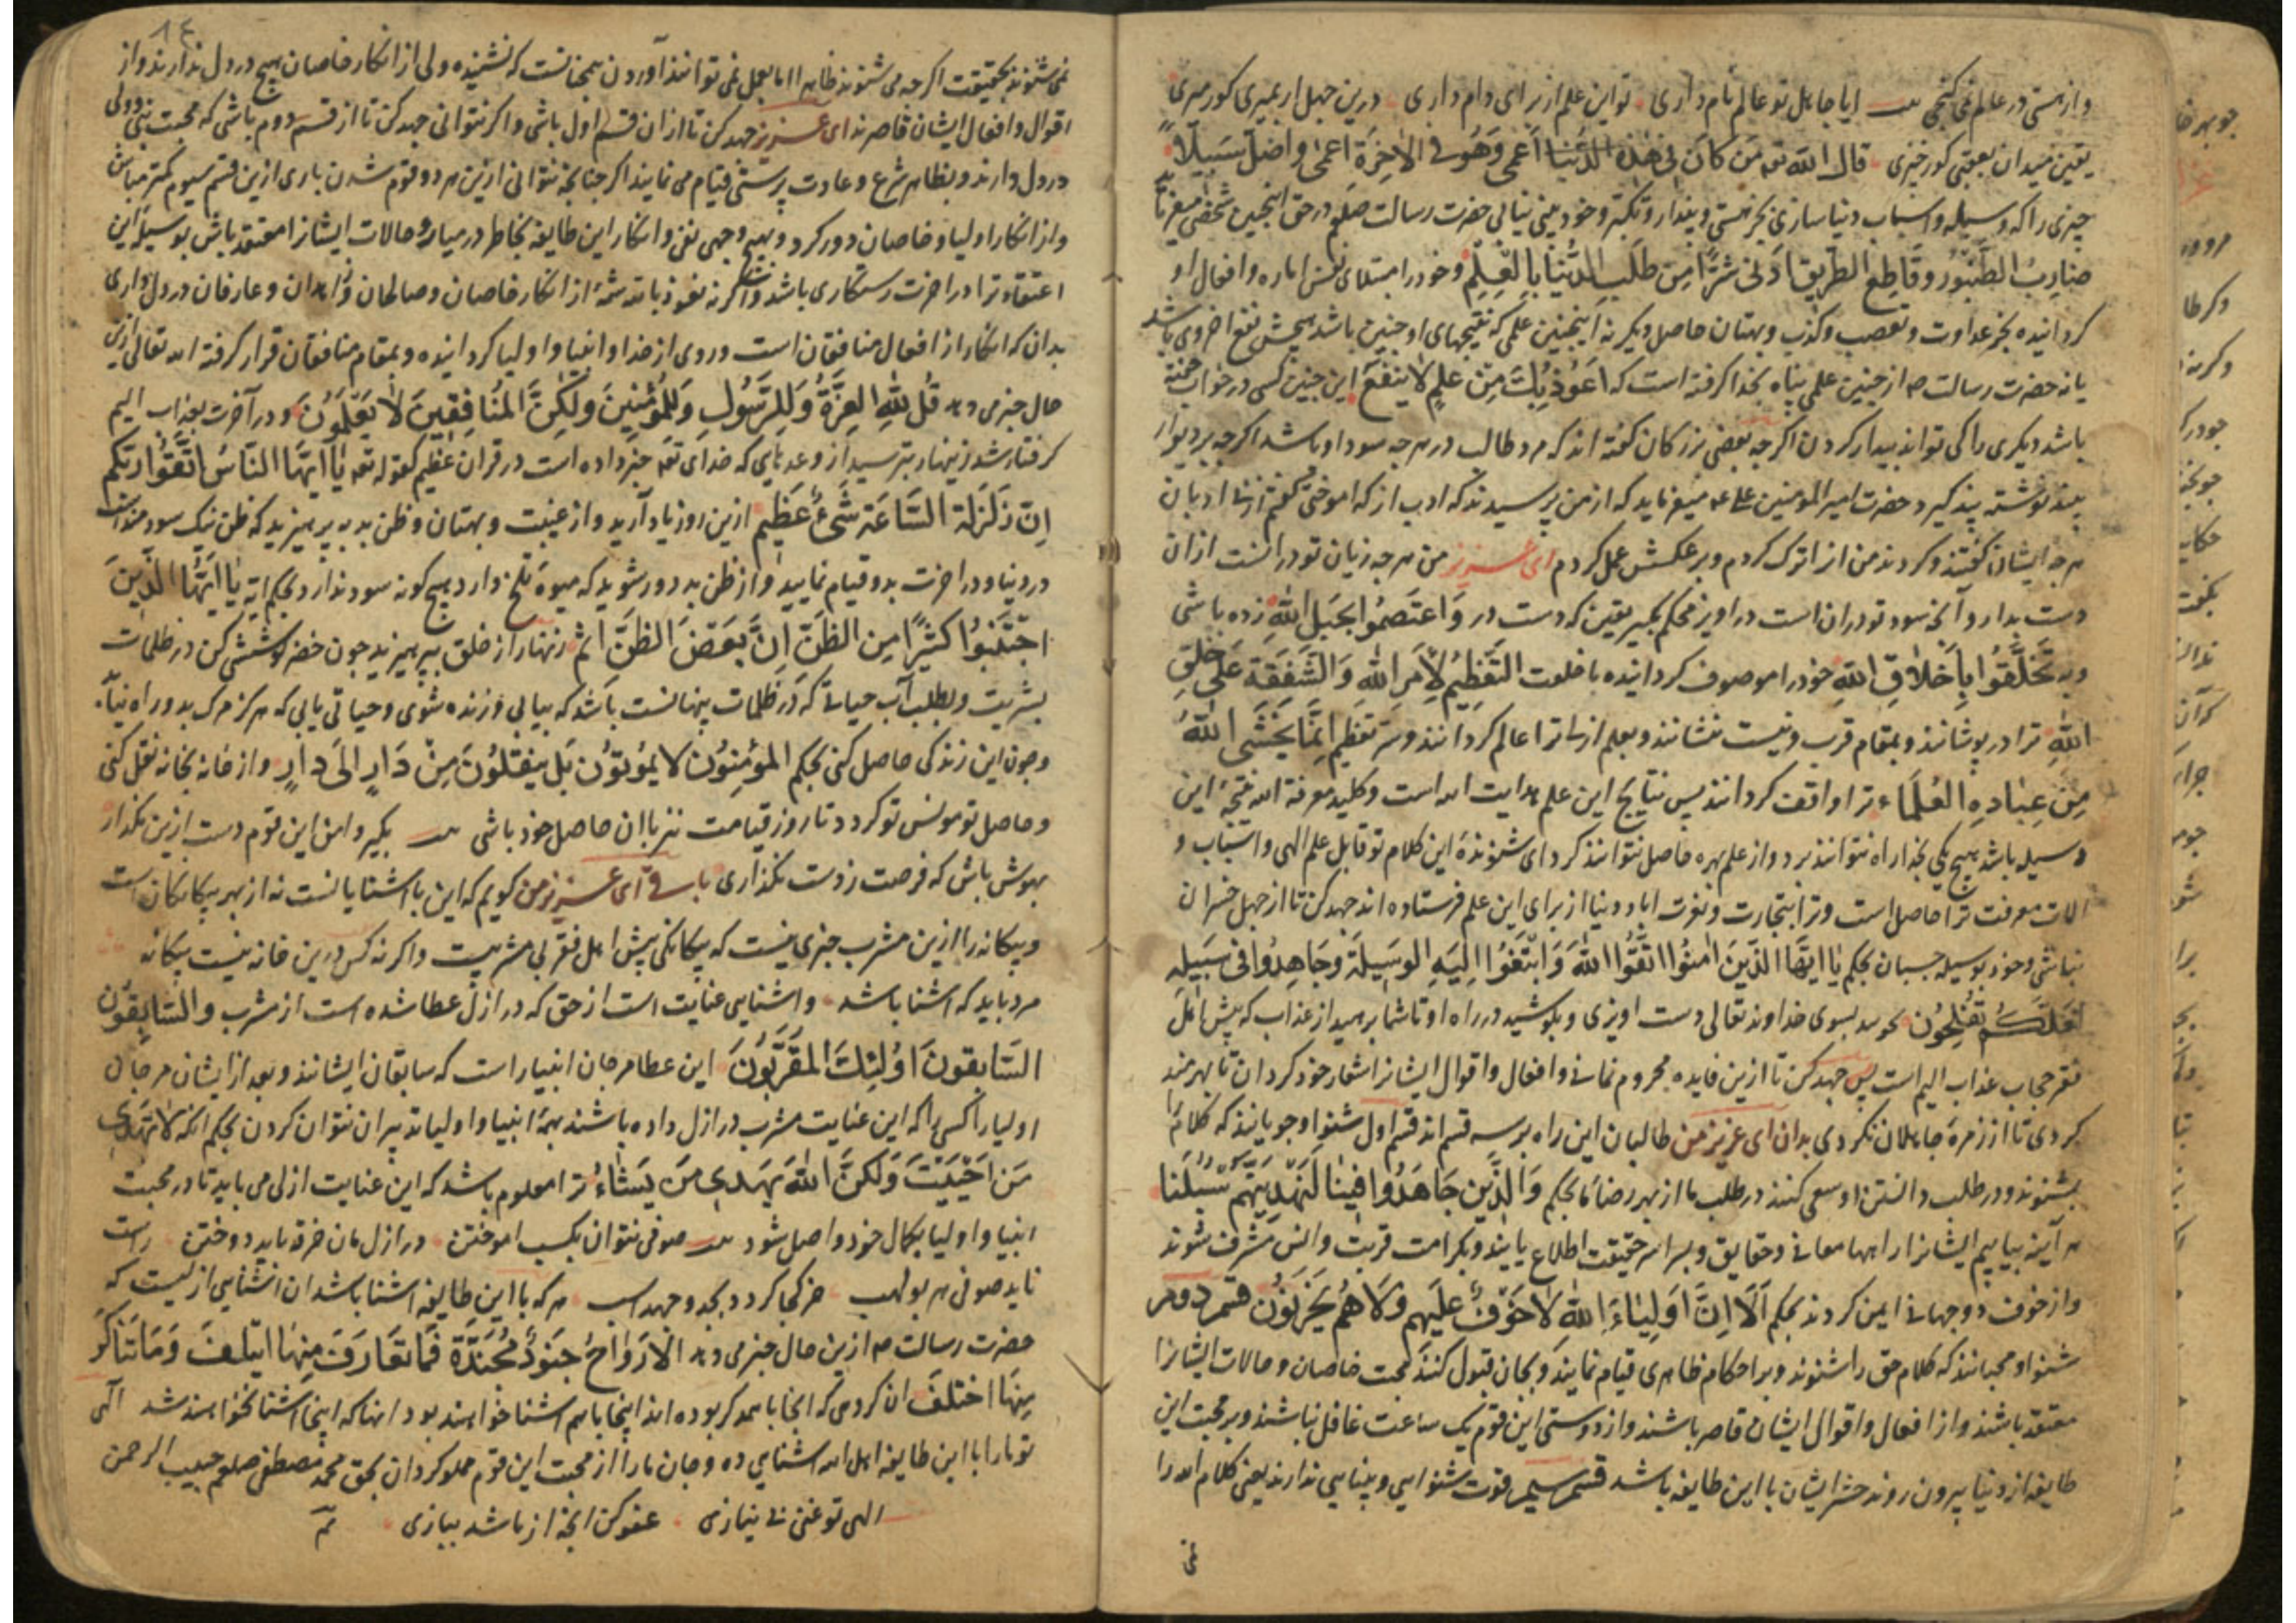 و از هستی در عالم نمی کنجی ایا جاهل تو عالم نام داری تو این علم از برای دام داری درین جهل ار بمیری کور میری
یقین میدان بعقبی کور خیزی قال الله تعه مَن کَانَ فی هٰذِهِ الدُّنیَا اَعمٰی وَهُوَ فی الاٰخِرَةِ اَعمٰی وَاَضَلُّ سَبیلًا
چیزی را که وسیله و اسباب دنیا سازی بجز هستی و پندار و تکبّر و خود بینی نیابی حضرت رسالت صلعم در حق اینچنین شخصی میفرماید
ضَارِبُ الطُّنبُورِ وَقَاطِعُ الطَّریقِ اَدنٰی شَرًّا مِن طَلَبِ الدُّنیَا بِالعِلمِ و خود را مبتلای نفس اماره و افعال او
کردانیده بجز عداوت و تعصب و کذب و بهتان حاصل دیکر نه اینچنین علمی که نتیجهای او چنین باشد هیچش نفع اخروی باشد
یا نه حضرت رسالت صه از چنین علمی پناه بخدا کرفته است که اَعُوذُ بِکَ مِن عِلمٍ لَا یَنفَعُ این چنین کسی در خواب خفته
باشد دیکری را کی تواند بیدار کردن اکرجه بعضی بزرکان کفته اند که مرد طالب در هرجه سود او باشد اکرجه بر دیوار
پند نوشته پند کیرد حضرت امیر المومنین علی عه میفرماید که از من پرسیدند که ادب از که اموختی کفتم از بی ادبان
هرجه ایشان کفتند و کردند من انرا ترک کردم و برعکسش عمل کردم ای عزیز من هرجه زیان تو درانست ازان
دست بدار و آنجه سود تو دران است دراویز محکم بکیر یقین که دست در وَاعتَصِمُوا بِحَبلِ اللهِ زده باشی
و به تَخَلَّقُوا بِاَخلَاقِ اللهِ خود را موصوف کردانیده با خلعت التَّعظیمُ لِاَمرِ اللهِ وَالشَّفَقَةُ عَلٰی خَلقِ
اللهِ ترا در پوشانند و بمقام قرب و نیست نشانند و بعلم ازلی ترا عالم کردانند و سرّ تعظیم اِنَّمَا یَخشَی اللهَ
مِن عِبَادِهِ العُلَمَاءُ ترا واقف کردانند پس نتایج این علم هدایت الله است و کلید معرفة الله نتیجهٔ این
وسیله باشد هیچ یکی بخدا راه نتوانند برد و از علم بهره حاصل نتوانند کرد ای شنوندهٔ این کلام تو قابل علم الهی و اسباب و
الات معرفت ترا حاصل است و ترا بتجارت و نفرت اباد دنیا از برای این علم فرستاده اند جهد کن تا از جهل خسران
نباشی و خود بوسیله جسبان بحکم یَا اَیُّهَا الَّذینَ اٰمَنُوا اتَّقُوا اللهَ وَابتَغُوا اِلَیهِ الوَسیلَةَ وَجَاهِدُوا فی سَبیلِهِ
لَعَلَّکُم تُفلِحُونَ بسوی خداوند تعالی دست اویزی و بکوشید در راه او تا شما برهید از عذاب که پیش اهل
فقر حجاب عذاب الیم است پس جهد کن تا ازین فایده محروم نمانی و افعال و اقوال ایشانرا شعار خود کردان تا بهرمند
کردی تا از زمرهٔ جاهلان نکردی بدان ای عزیز من طالبان این راه بر سه قسم اند قسم اول شنوا و جویانند که کلام ما
بشنوند و در طلب دانستن او سعی کنند در طلب ما از بهر رضاء ما بحکم وَالَّذینَ جَاهَدُوا فینَا لَنَهدِیَنَّهُم سُبُلَنَا
هرآینه بیابیم ایشانرا راهها معانی و حقایق و بسرایر حقیقت اطلاع یابند و بکرامت قربت و انس مشرف شوند
و از خوف دو جهانی ایمن کردند بحکم اَلَا اِنَّ اَولِیَاءَ اللهِ لَا خَوفٌ عَلَیهِم وَلَا هُم یَحزَنُونَ قسم دوم
شنوا و محبانند که کلام حق را شنوند و بر احکام ظاهری قیام نمایند و بجان قبول کنند محبت خاصان و حالات ایشانرا
معتقد باشند و از افعال و اقوال ایشان قاصر باشند و از دوستی این قوم یک ساعت غافل نباشند و بر محبت این
طایفه از دنیا بیرون روند حشر ایشان با این طایفه باشد قسم سیم قوت شنوایی و بینایی ندارند یعنی کلام الله را
نمی
۱۴
نمی شنوند بحقیقت اکرجه می شنوند ظاهرا اما بعمل نمی توانند آوردن همچنانست که نشنیده ولی از انکار خاصان هیچ در دل ندارند و از
اقوال و افعال ایشان قاصرند ای عزیز جهد کن تا ازان قسم اول باشی و اکر نتوانی جهد کن تا از قسم دوم باشی که محبت نبی و ولی
در دل دارند و بظاهر شرع و عادت پرستی قیام می نمایند اکر جنانجه نتوانی ازین هر دو قوم شدن باری ازین قسم سیوم کمتر مباش
و از انکار اولیا و خاصان دور کرد و بهیچ وجهی نفی و انکار این طایفه بخاطر در میار و حالات ایشانرا معتقد باش بوسیلهٔ این
اعتقاد ترا در اخرت رستکاری باشد و اکر نه نعوذ بالله شمهٔ از انکار خاصان و صالحان و زاهدان و عارفان در دل داری
بدان که انکار از افعال منافقان است و روی از خدا و انبیا و اولیا کردانیده و بمقام منافقان قرار کرفته الله تعالی ازین
حال خبر می دهد قُل لِلّٰهِ العِزَّةُ وَلِلرَّسُولِ وَلِلمُؤمِنینَ وَلٰکِنَّ المُنَافِقینَ لَا یَعلَمُونَ و در آخرت بعذاب الیم
کرفتار شد زینهار بترسید از وعدهای که خدای تعه خبر داده است در قران عظیم کقوله تعه یَا اَیُّهَا النَّاسُ اتَّقُوا رَبَّکُم
اِنَّ زَلزَلَةَ السَّاعَةِ شَیءٌ عَظیمٌ ازین روز یاد آرید و از غیبت و بهتان و ظن بد بپرهیزید که ظن نیک سودمند است
در دنیا و در اخرت بدو قیام نمایید و از ظن بد دور شوید که میوهٔ تلخ دارد هیچ کونه سود ندارد بحکم ایه یَا اَیُّهَا الَّذینَ
اجتَنِبُوا کَثیرًا مِنَ الظَّنِّ اِنَّ بَعضَ الظَّنِّ اِثمٌ زنهار از خلق بپرهیزید جون خضر کوششی کن در ظلمات
بشریت و بطلب آب حیاتی که در ظلمات پنهانست باشد که بیابی و زنده شوی و حیاتی یابی که هرکز مرک بدو راه نیابد
و جون این زندکی حاصل کنی بحکم المُؤمِنُونَ لَا یَمُوتُونَ بَل یَنقَلُونَ مِن دَارٍ اِلٰی دَارٍ و از خانه بخانه نقل کنی
و حاصل تو مونس تو کردد تا روز قیامت نیز با ان حاصل خود باشی بکیر دامن این قوم دست ازین مکذار
بهوش باش که فرصت ز دست نکذاری باقی ای عزیز من کویم که این با اشنایانست نه از بهر بیکانکان است
و بیکانه را ازین مشرب چیزی نیست که بیکانکی پیش اهل فقر بی مشربیت و اکرنه کس درین خانه نیست بیکانه
مرد باید که اشنا باشد و اشنایی عنایت است از حق که در ازل عطا شده است از مشرب وَالسَّابِقُونَ
السَّابِقُونَ اُولٰئِکَ المُقَرَّبُونَ این عطا مر جان انبیا راست که سابقان ایشانند و بعد از ایشان مر جان
اولیا را کسی را که این عنایت مشرب در ازل داده باشند همهٔ انبیا و اولیا تدبیر ان نتوان کردن بحکم انکه لَا تَهدی
مَن اَحبَبتَ وَلٰکِنَّ اللهَ یَهدی مَن یَشَاءُ ترا معلوم باشد که این عنایت ازلی می باید تا در محبت
انبیا و اولیا بکمال خود واصل شود صوفی نتوان بکسب اموختن در ازل ان خرقه باید دوختن راست
ناید صوفی هر بولهب خر کجا کردد بجد و جهد اسب هر که با این طایفه اشنا باشد ان اشنایی ازلیست که
حضرت رسالت صه ازین حال خبر می دهد الاَروَاحُ جُنُودٌ مُجَنَّدَةٌ فَمَا تَعَارَفَ مِنهَا ایتَلَفَ وَمَا تَنَاکَرَ
مِنهَا اختَلَفَ ان کردهی که انجا با همدکر بوده اند اینجا با هم اشنا خواهند بود انها که اینجا اشنا نخواهند شد الهی
تو ما را با این طایفه اهل الله اشنایی ده و جان ما را از محبت این قوم مملو کردان بحق محمد مصطفی صلعم حبیب الرحمن
الهی تو غنی بی نیازی عفو کن انجه از ما شد ببازی تم